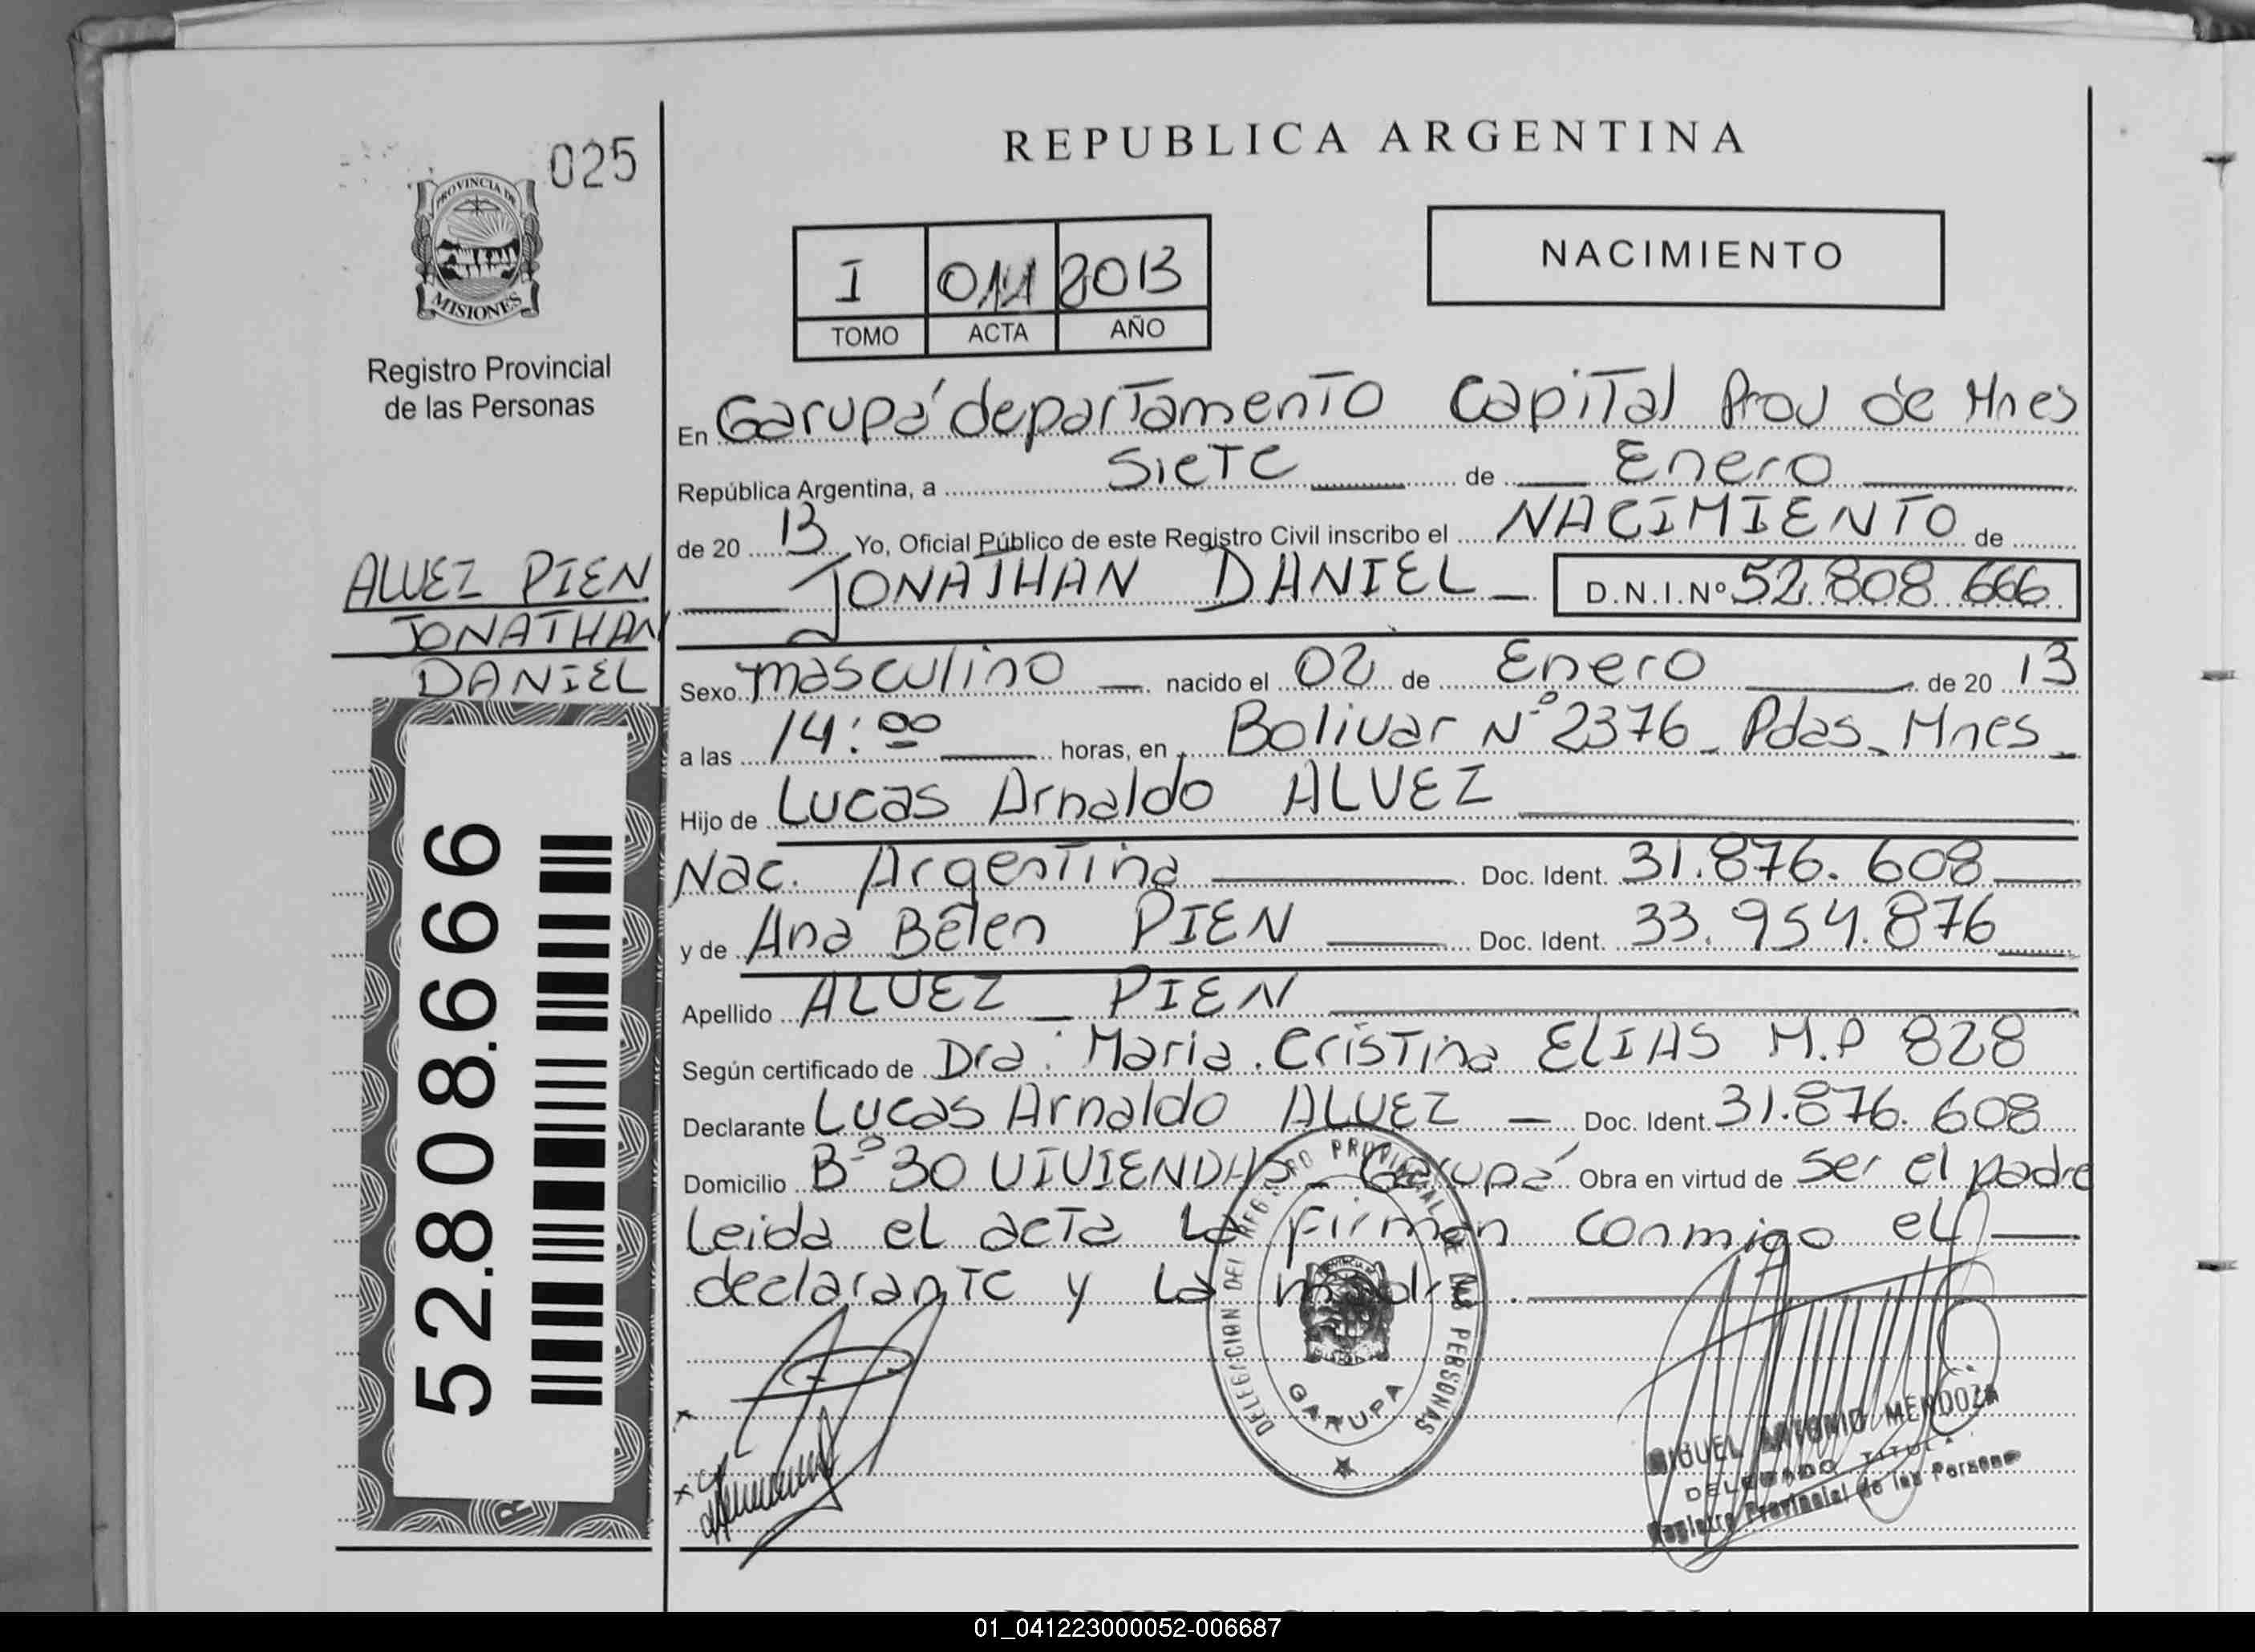 025
PROVINCIA DE
MISIONES
Registro Provincial
de las Personas
ALVEZ PIEN
JONATHAN
DANIEL
52.808.666
REPUBLICA ARGENTINA
NACIMIENTO
I 011 2013
TOMO ACTA AÑO
En Garupá departamento Capital Prov de Mnes
República Argentina, a siete de Enero
de 20 13 Yo, Oficial Público de este Registro Civil inscribo el NACIMIENTO de
JONATHAN DANIEL D.N.I.Nº 52.808.666
Sexo masculino nacido el 02 de Enero de 20 13
a las 14:00 horas, en Bolivar Nº 2376 - Pdas - Mnes -
Hijo de Lucas Arnaldo ALVEZ
Nac. Argentina Doc. Ident. 31.876.608
y de Ana Belen PIEN Doc. Ident. 33.954.876
Apellido ALVEZ - PIEN
Según certificado de Dra: Maria Cristina ELIAS M.P 828
Declarante Lucas Arnaldo ALVEZ - Doc. Ident. 31.876.608
Domicilio Bº 30 VIVIENDAS - Garupá Obra en virtud de ser el padre
Leida el acta La firman conmigo el
declarante y La madre.
DELEGACION DEL REGISTRO PROVINCIAL DE LAS PERSONAS
GARUPA
MIGUEL ANTONIO MENDOZA
DELEGADO TITULAR
Registro Provincial de las Personas
01_041223000052-006687